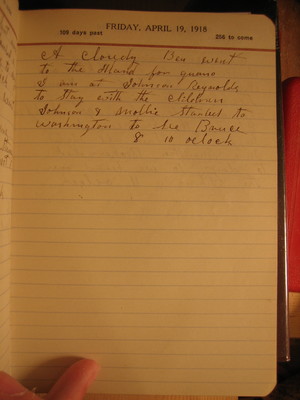 FRIDAY, APRIL 19, 1918
109 days past
256 to come
A Cloudy Ben went
to the Island for guano
I am at Johnson Reynolds
to stay with the children
Johnson & Mollie started to
Washington to see Bance
8 10 oclock